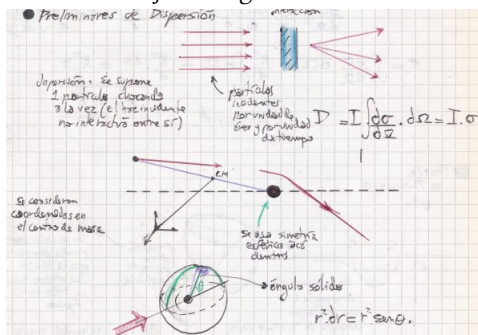 ● Preliminares de Dispersión
dispersión: se supone
1 partícula chocando
a la vez (el haz incidente
no interactúa entre sí)
partículas
incidentes
por unidad de
área y por unidad
de tiempo
D = I ∫ dσ/dΩ . dΩ = I . σ
CM
se consideran
coordenadas en
el centro de masa
Se usa simetría
esférica acá
dentro
θ
ángulo sólido
r² dr = r² senθ.